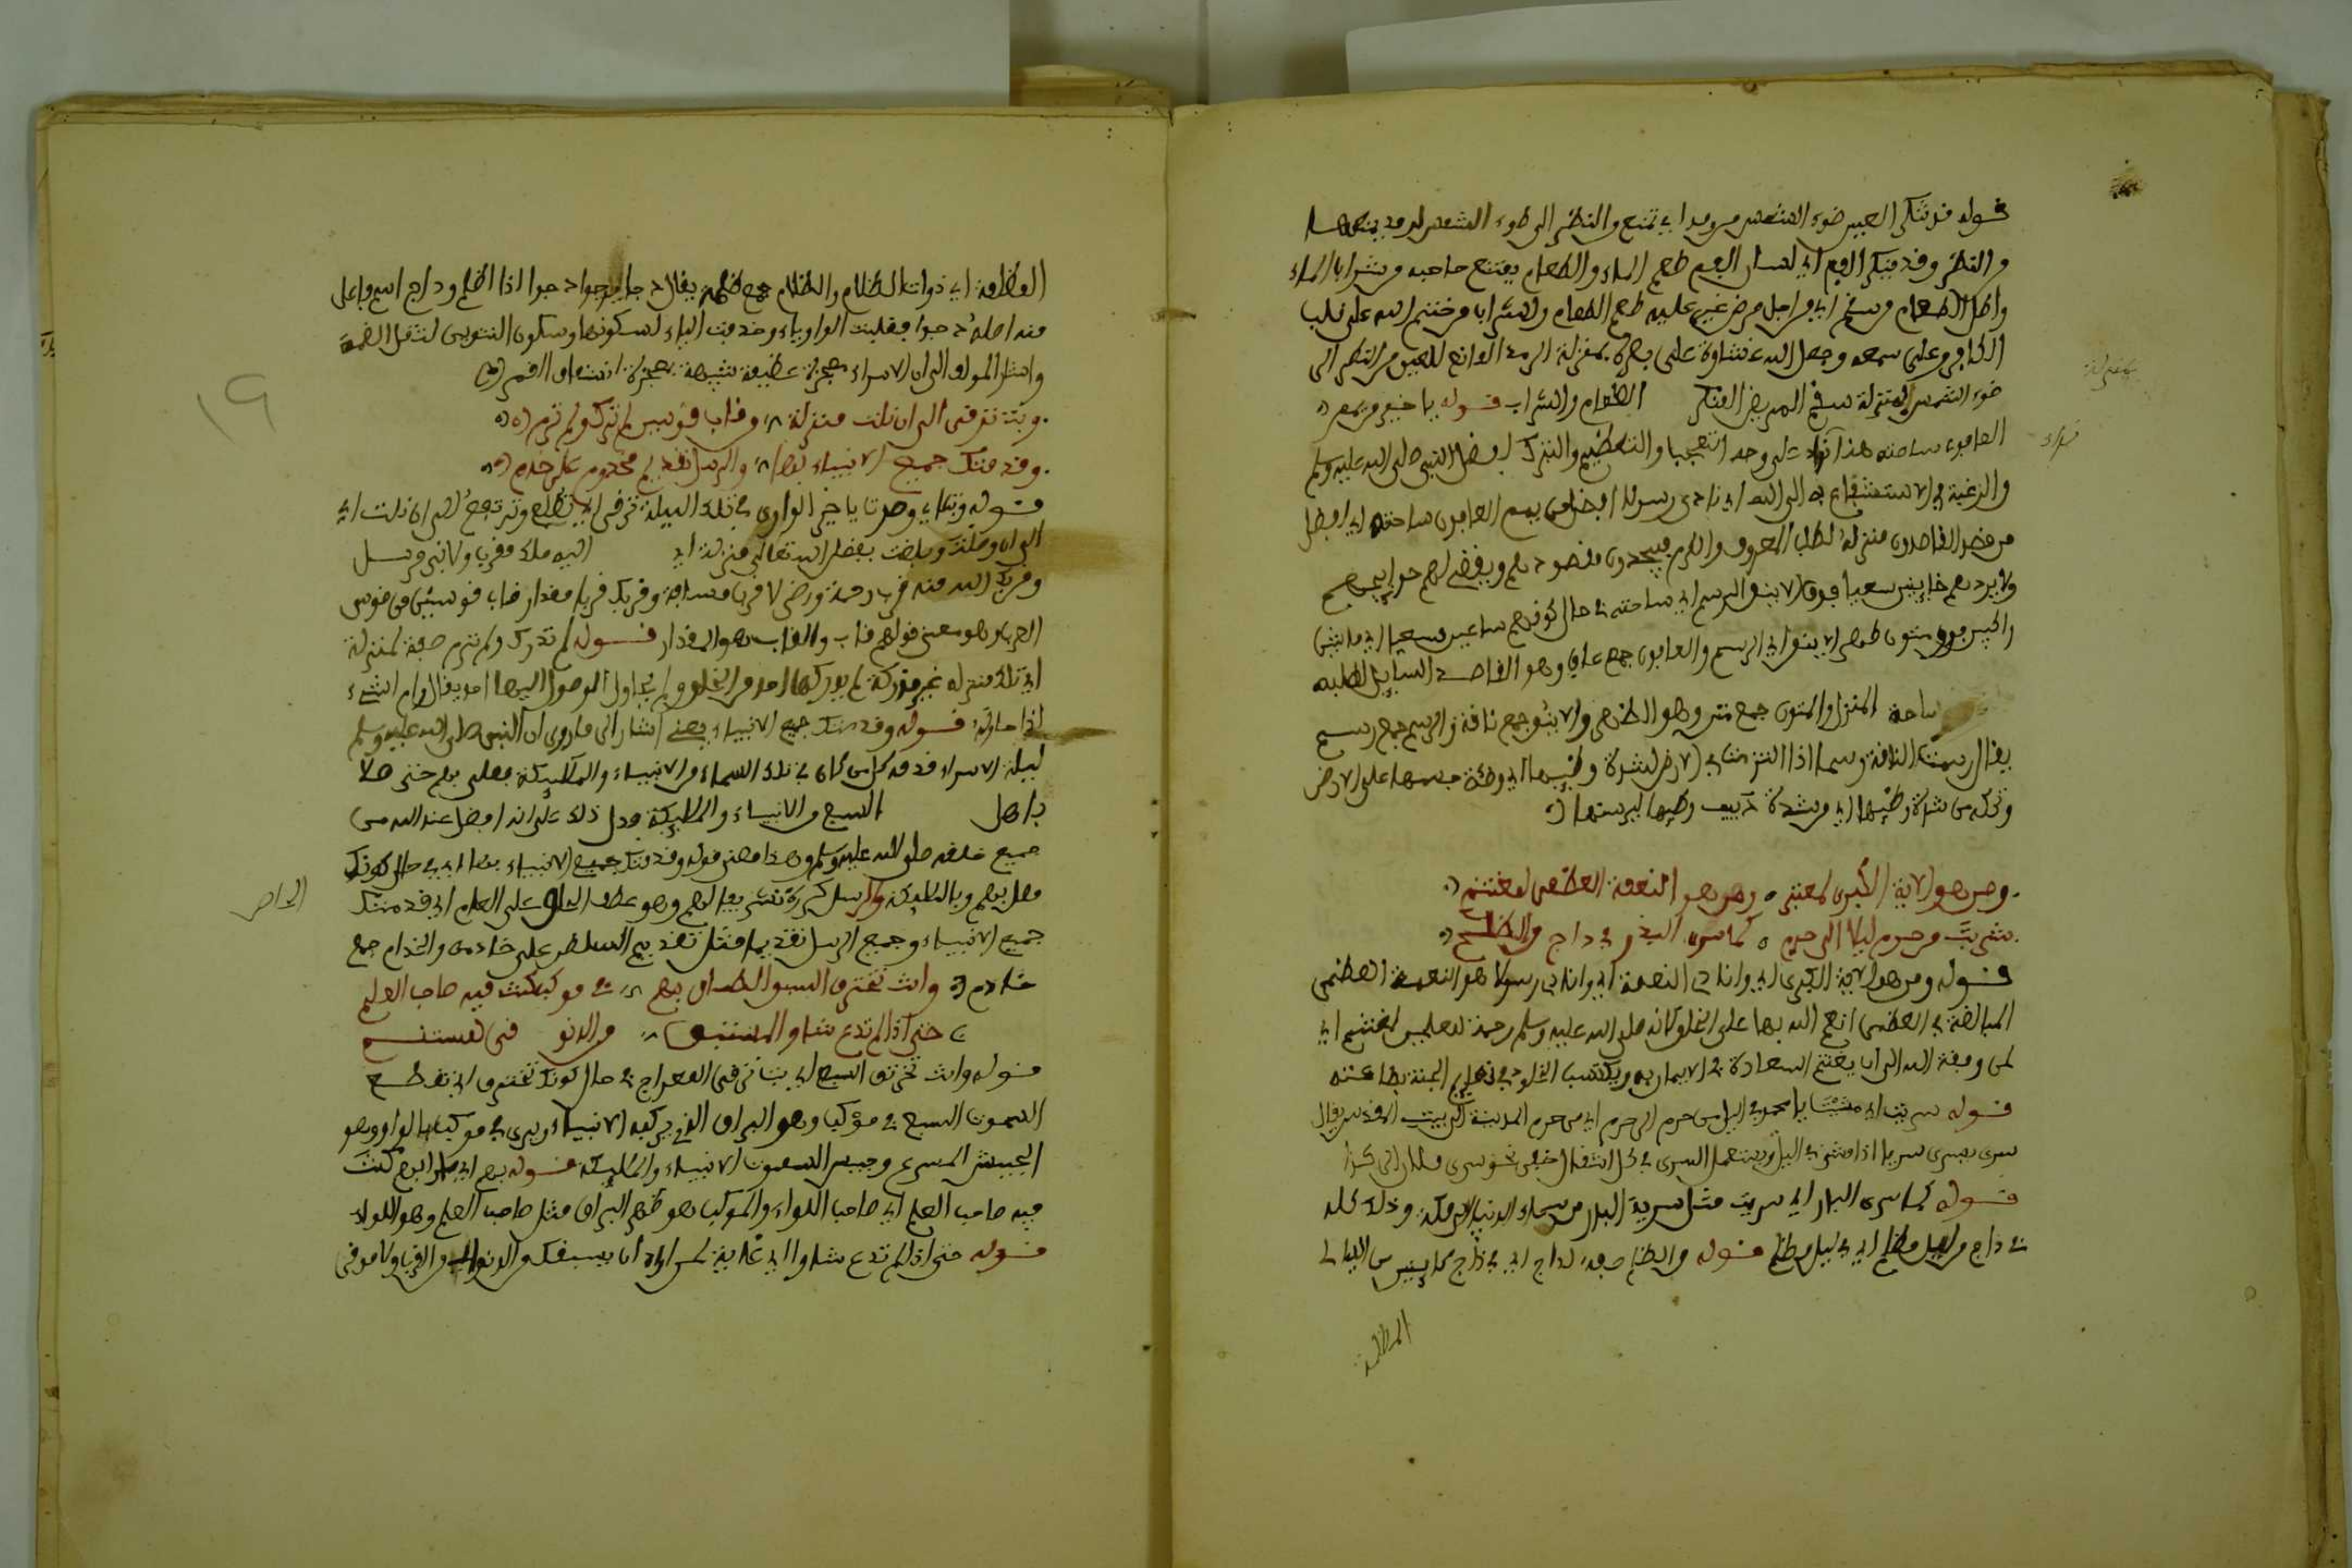 قوله قد تنكر العين ضوء الشمس من رمد اي تمنع والنظر الى ضوء الشمس لرمد يمنعها
والنظر وقد ينكر الفم اي لسان الفم طعم الماء والطعام يمتنع صاحبه من شراب الماء
واكل الطعام من سقم اي من اجل مرض غير عليه طعم الطعام والشراب من ختم الله على قلب
الكافر وعلى سمعه وجعل الله غشاوة على بصره بمنزلة الرمد المانع للعين من النظر الى
ضوء الشمس بمنزلة سقم المريض المنكر الطعام والشراب قوله يا خير من يمم
العافون ساحته هذا نداء على وجه التعجب والتعظيم والتبرك افضل النبي صلى الله عليه وسلم
والرغبة في الاستشفاع به الى الله اي نادى رسول افضل من يمم العافون ساحته اي افضل
من قصد القاصدون منزله لطلب المعروف والكرم فيجدون مقصودهم ويقضي لهم حوايجهم
ولا يردهم خايبين سعيا وفوق الاينق الرسم اي ساحته في حال كونهم ساعين سعيا اي ماشين
راكبين فوق متون ظهر الاينق اي الرسم والعافون جمع عاف وهو القاصد السايل لطلبه
ساحة المنزل والمتون جمع متن وهو الظهر والاينق جمع ناقة والرسم جمع رسم
يقال رسمت الناقة رسما اذا اثرت مشي في الارض لشدة وطيها اي وطئة جسمها على الارض
وذلك من شدة وطيها اي من شدة
ومن هو الاية الكبرى لمعتبر ٥ ومن هو النعمة العظمى لمغتنم
سريت من حرم ليلا الى حرم ٥ كما سرى البدر في داج من الظلم
قوله ومن هو الاية الكبرى اي وانادي النعمة اي وانادي رسولا هو النعمة العظمى
المبالغة في العظمى انعم الله بها على الخلق كانه صلى الله عليه وسلم رحمة للعلمين لمغتنم اي
لمن وفقه الله الى ان يغتنم السعادة في الايمان به ويكتسب الخلود في نعيم الجنة بطاعته
قوله سريت اي مشيت يا محمد في الليل من حرم الى حرم اي من حرم المدينة الى بيت المقدس يقال
سرى يسري سريا اذا مشى في الليل ويستعمل السرى في كل انتقال خفي نحو سرى
قوله كما سرى البدر اي سريت مثل سرية البدر من سماء الدنيا وذلك كله
في داج من ليل مظلم اي في ليل مظلم قوله من الظلم صفة لداج اي في داج كاين من الليالى
المظلمة
بمنزلة
نداء
المظلمة اي ذوات الظلام والظلام جمع ظلمة يقال دجا يدجو دجوا اذا اظلم وداج اسم فاعل
منه اصله داجو فقلبت الواو ياء وحذفت الياء لسكونها وسكون التنوين لثقل الضمة
واشار المولف الى ان الاسراء معجزة عظيمة شبيهة بمعجزة انشقاق القمر
وبت ترقى الى ان نلت منزلة من قاب قوسين لم تدرك ولم ترم
وقدمتك جميع الانبياء بها والرسل تقديم مخدوم على خدم
قوله وبت اي وصرت يا خير الورى في تلك الليلة ترقى اي تطلع وترتفع الى ان نلت اي
الى ان وصلت وبلغت بفضل الله تعالى منزلة اي اليه ملك مقرب ولا نبي مرسل
وقربك الله منه قرب رحمة ورضى لا قرب مسافة وقربك قربا مقدار قاب قوسين من قوس
العرب وهو معنى قولهم قاب والقاب هو المقدار قوله لم تدرك ولم ترم صفة لمنزلة
اي تلك منزلة غير مدركة لم يدركها احد من الخلق ولم يحاول الوصول اليها احد يقال رام الشيء
اذا حاوله قوله وقدمتك جميع الانبياء يعني اشار الى ما روي ان النبي صلى الله عليه وسلم
ليلة الاسراء قدمه كل من كان في تلك السماء من الانبياء والملئكة فصلى بهم حتى صلا
باهل السبع من الانبياء والملئكة فدل ذلك على انه افضل عند الله من
جميع خلقه صلى الله عليه وسلم وهذا معنى قوله وقدمتك جميع الانبياء بها اي في حال كونك
مصل بهم وبالملئكة والرسل كرره تشريفا لهم وهو عطف الخاص على العام اي قدمتك
جميع الانبياء وجميع الرسل تقديما مثل تقديم السلطان على خادمه والخدام جمع
خادم وانت تخترق السبع الطباق بهم في موكب كنت فيه صاحب العلم
حتى اذا لم تدع شاوا لمستبق من الدنو ولا مرقى لمستنم
قوله وانت تخترق السبع اي بت ترقى المعراج في حال كونك تخترق اي تقطع
السموت السبع في موكب وهو البراق الذي يركبه الانبياء ويروى في موكب بالواو وهو
الجيش المسرع وجيش السموت الانبياء والملئكة قوله بهم اي مارا بهم كنت
فيه صاحب العلم اي صاحب اللواء والموكب هو ظهر البراق مثل صاحب العلم وهو اللواء
قوله حتى اذا لم تدع شاوا اي غاية لمن اراد ان يسبقك من الدنو اي من القرب ولا مرقى
الخاص
١٩